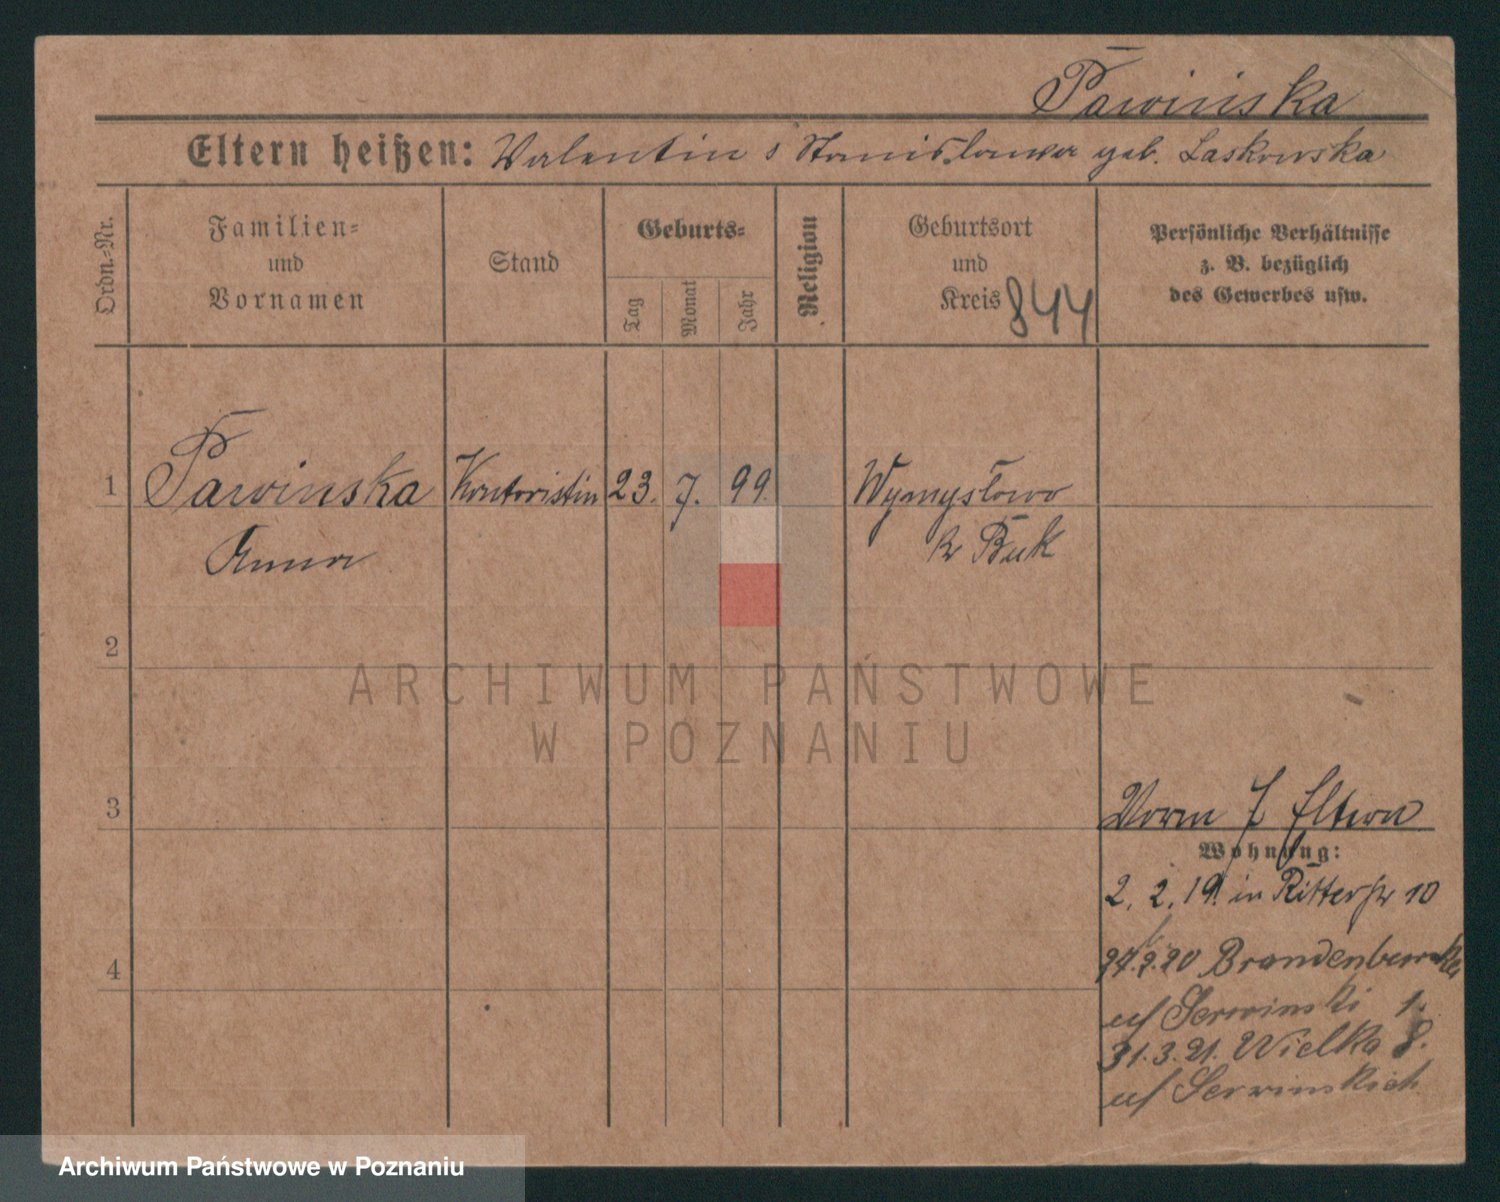 Pawińska
Eltern heißen: Valentin s Stanisława geb. Laskowska
Ordn.-Nr.
Familien-
und
Vornamen
Stand
Geburts-
Tag
Monat
Jahr
Religion
Geburtsort
und
Kreis 844
Persönliche Verhältnisse
z. B. bezüglich
des Gewerbes usw.
1 Pawinska Kontoristin 23. 7. 99 Wymysłowo
Anna Kr Buk
2
ARCHIWUM PAŃSTWOWE
W POZNANIU
3
Vorm Eltern
Wohnung:
2. 2. 19. in Ritterstr 10
4
20 Brandenbur
Serwinski 1.
31.3.21. Wielka 8.
Serwinskich
Archiwum Państwowe w Poznaniu